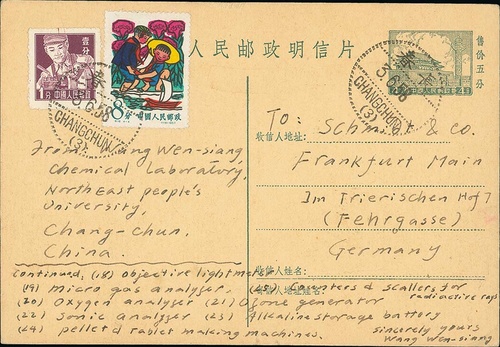 人民邮政明信片
壹分
1分 中國人民郵政
8分 中國人民郵政
售价五分
中国人民邮政
CHANGCHUN
(3)
3.6.58
CHANGCHUN
(3)
收信人地址:
To: Schmidt & co.
Frankfurt Main
Im Trierischen Hof 7
(Fehrgasse)
Germany
收信人姓名:
From Wang Wen-siang
Chemical Laboratory,
North East people's
University,
Chang-chun,
China.
continued, (18) objective light
(19) micro gas analyser, Counters & scallers for
(20) Oxygen analyser (21) Ozone generator radioactive rays
(22) sonic analyser (23) Alkaline storage battery
(24) pellet & tablet making machines.
sincerely yours
Wang Wen-siang